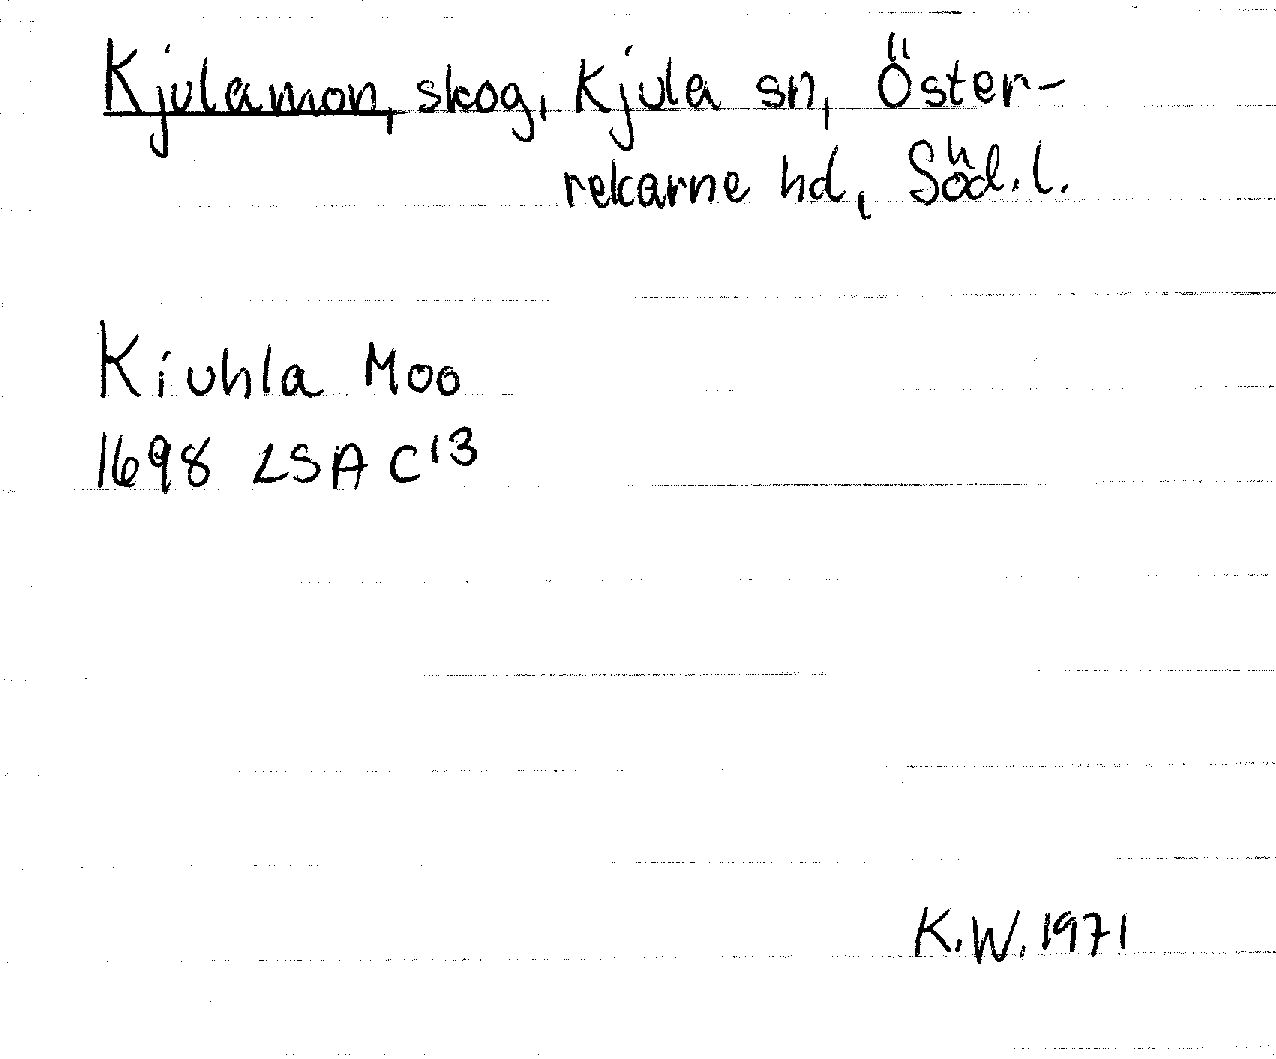 Kjulamon, skog, Kjula sn, Öster-
rekarne hd, Söd.l.
Kiuhla Moo
1698 LSA C13
K.W. 1971